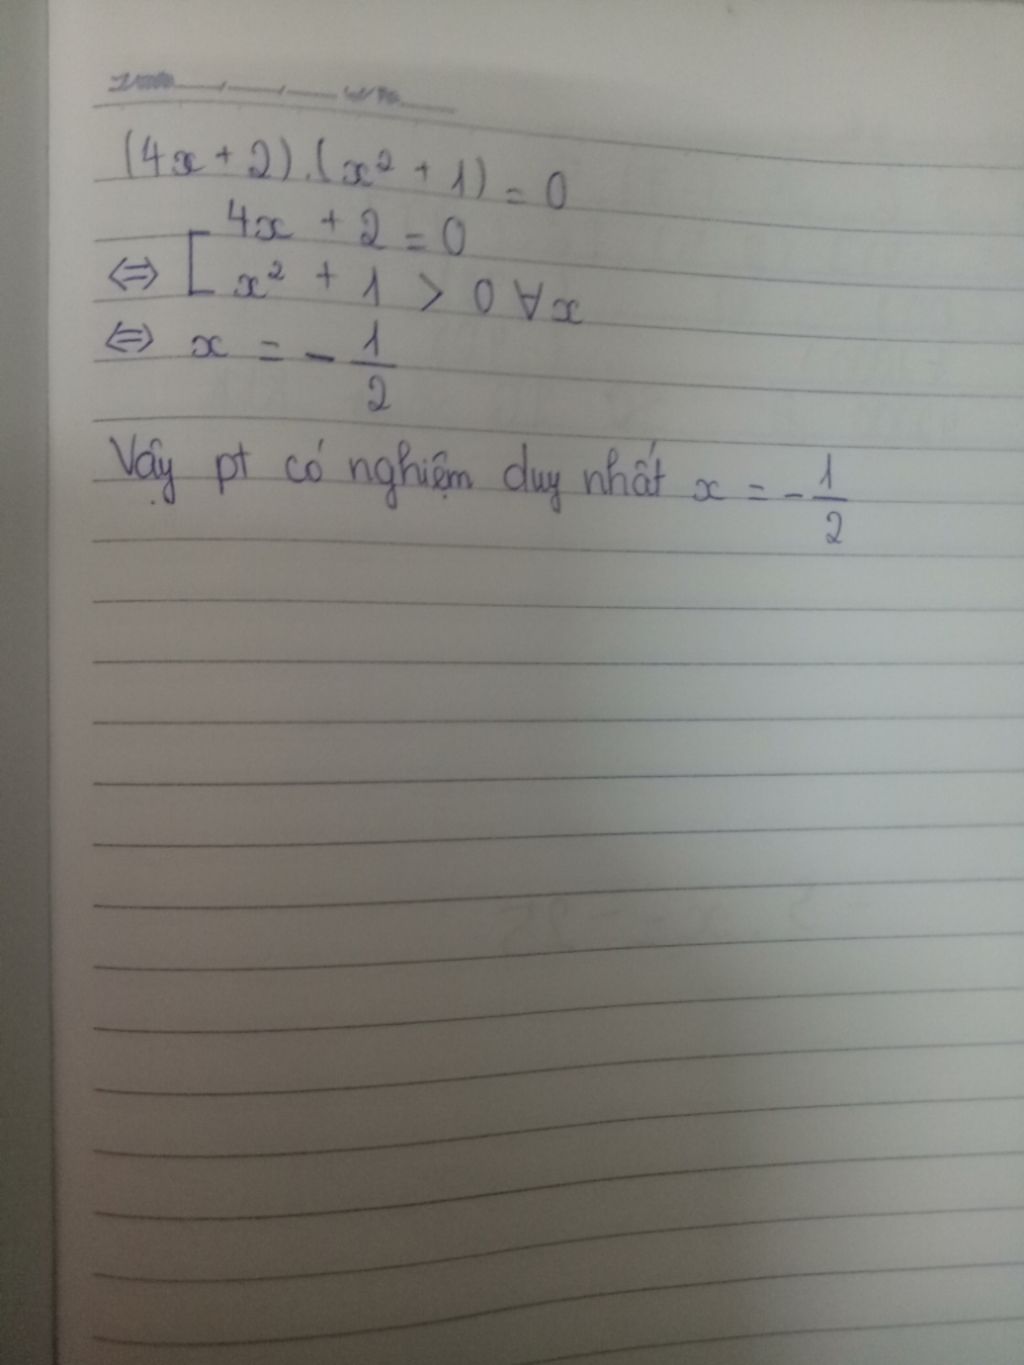 (4x + 2).(x² + 1) = 0
⇔ [ 4x + 2 = 0
x² + 1 > 0 ∀x
⇔ x = - 1/2
Vậy pt có nghiệm duy nhất x = - 1/2